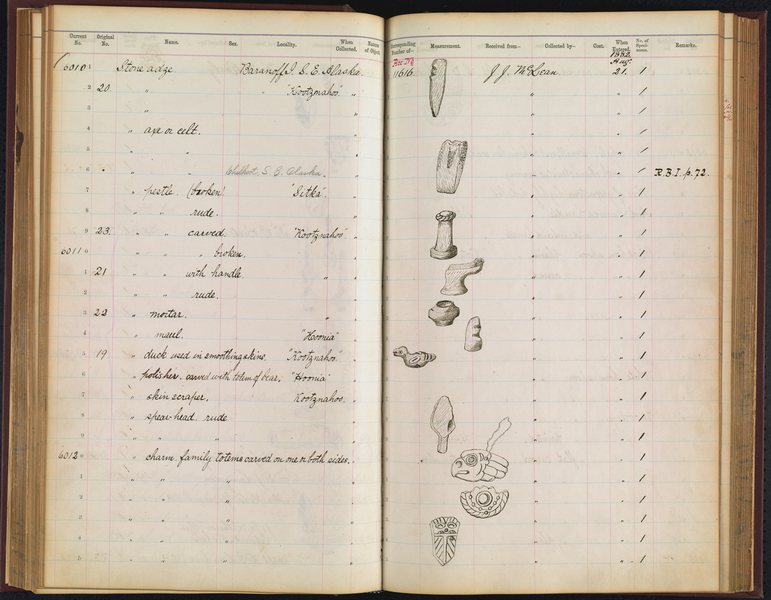 Current No. Original No. Name. Sex. Locality. When Collected. Nature of Object.
Corresponding Number of— Measurement. Received from— Collected by— Cost. When Entered. No. of Specimens. Remarks.
1882
6010 1 Stone adze Baranoff I. S. E. Alaska. 11616. J. J. McLean. Aug. 21. 1
2 20. " " "Kootznahoo" " " " 1
3 " " " " " 1
4 " axe or celt. " " " 1
5 " " " " " 1
6 " " Chilkat, S. E. Alaska. " " " 1 R.B.I. p. 72.
7 " pestle (broken) "Sitka" " " " 1
8 " " rude. " " " 1
9 23. " " carved. "Kootznahoo" " " " 1
6011 0 " " " broken. " " " 1
1 21 " " with handle. " " " " 1
2 " " rude. " " " 1
3 22 " mortar. " " " " 1
4 " maul. "Hoonia" " " " 1
5 19 " duck used in smoothing skins. "Kootznahoo" " " " 1
6 " polisher. carved with totem of bear. "Hoonia" " " " 1
7 " skin scraper. Kootznahoo. " " " 1
8 " spear-head. rude " " " 1
9 " " " " " " 1
6012 0 " charm. family totems carved on one or both sides. " " " 1
1 " " " " " " 1
2 " " " " " " 1
3 " " " " " " 1
4 " " " " " " 1
5 " " " " " " 1